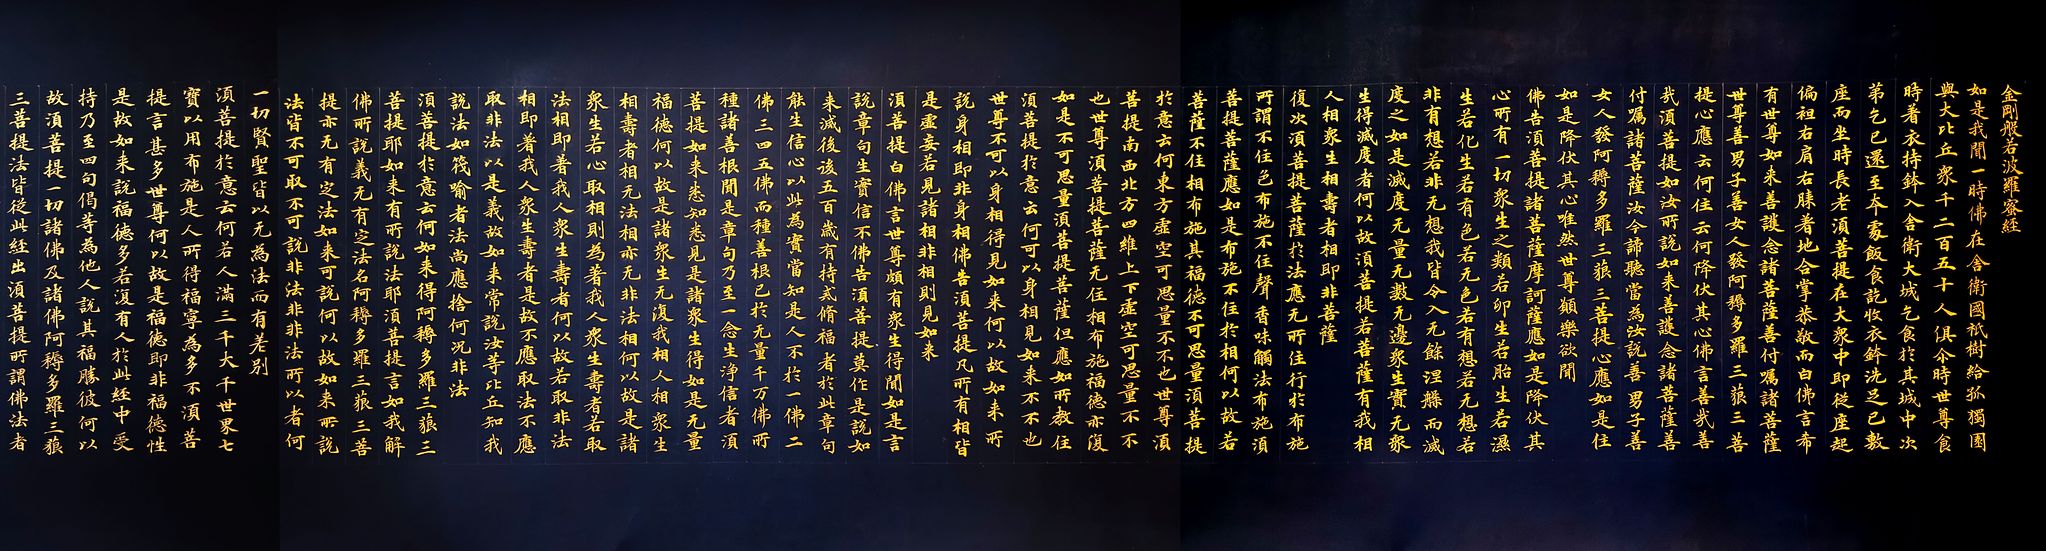 金剛般若波羅蜜經
如是我聞一時佛在舍衛國祇樹給孤獨園
與大比丘衆千二百五十人俱尒時世尊食
時着衣持鉢入舍衛大城乞食於其城中次
弟乞已還至本處飯食訖收衣鉢洗足已敷
座而坐時長老湏菩提在大衆中即從座起
偏袒右肩右膝著地合掌恭敬而白佛言希
有世尊如来善護念諸菩薩善付囑諸菩薩
世尊善男子善女人發阿耨多羅三藐三菩
提心應云何住云何降伏其心佛言善哉善
哉湏菩提如汝所說如来善護念諸菩薩善
付囑諸菩薩汝今諦聽當為汝說善男子善
女人發阿耨多羅三藐三菩提心應如是住
如是降伏其心唯然世尊願樂欲聞
佛告湏菩提諸菩薩摩訶薩應如是降伏其
心所有一切衆生之類若卵生若胎生若濕
生若化生若有色若无色若有想若无想若
非有想若非无想我皆令入无餘涅槃而滅
度之如是滅度无量无數无邊衆生實无衆
生得滅度者何以故湏菩提若菩薩有我相
人相衆生相壽者相即非菩薩
復次湏菩提菩薩於法應无所住行於布施
所謂不住色布施不住聲香味觸法布施湏
菩提菩薩應如是布施不住於相何以故若
菩薩不住相布施其福德不可思量湏菩提
於意云何東方虛空可思量不不也世尊湏
菩提南西北方四維上下虛空可思量不不
也世尊湏菩提菩薩无住相布施福德亦復
如是不可思量湏菩提菩薩但應如所教住
湏菩提於意云何可以身相見如来不不也
世尊不可以身相得見如来何以故如来所
說身相即非身相佛告湏菩提凡所有相皆
是虛妄若見諸相非相則見如来
湏菩提白佛言世尊頗有衆生得聞如是言
說章句生實信不佛告湏菩提莫作是說如
来滅後後五百歲有持戒脩福者於此章句
能生信心以此為實當知是人不於一佛二
佛三四五佛而種善根已於无量千万佛所
種諸善根聞是章句乃至一念生淨信者湏
菩提如来悉知悉見是諸衆生得如是无量
福德何以故是諸衆生无復我相人相衆生
相壽者相无法相亦无非法相何以故是諸
衆生若心取相則為著我人衆生壽者若取
法相即著我人衆生壽者何以故若取非法
相即著我人衆生壽者是故不應取法不應
取非法以是義故如来常說汝等比丘知我
說法如筏喻者法尚應捨何況非法
湏菩提於意云何如来得阿耨多羅三藐三
菩提耶如来有所說法耶湏菩提言如我解
佛所說義无有定法名阿耨多羅三藐三菩
提亦无有定法如来可說何以故如来所說
法皆不可取不可說非法非非法所以者何
一切賢聖皆以无為法而有差別
湏菩提於意云何若人滿三千大千世界七
寶以用布施是人所得福寧為多不湏菩
提言甚多世尊何以故是福德即非福德性
是故如来說福德多若復有人於此經中受
持乃至四句偈等為他人說其福勝彼何以
故湏菩提一切諸佛及諸佛阿耨多羅三藐
三菩提法皆從此經出湏菩提所謂佛法者